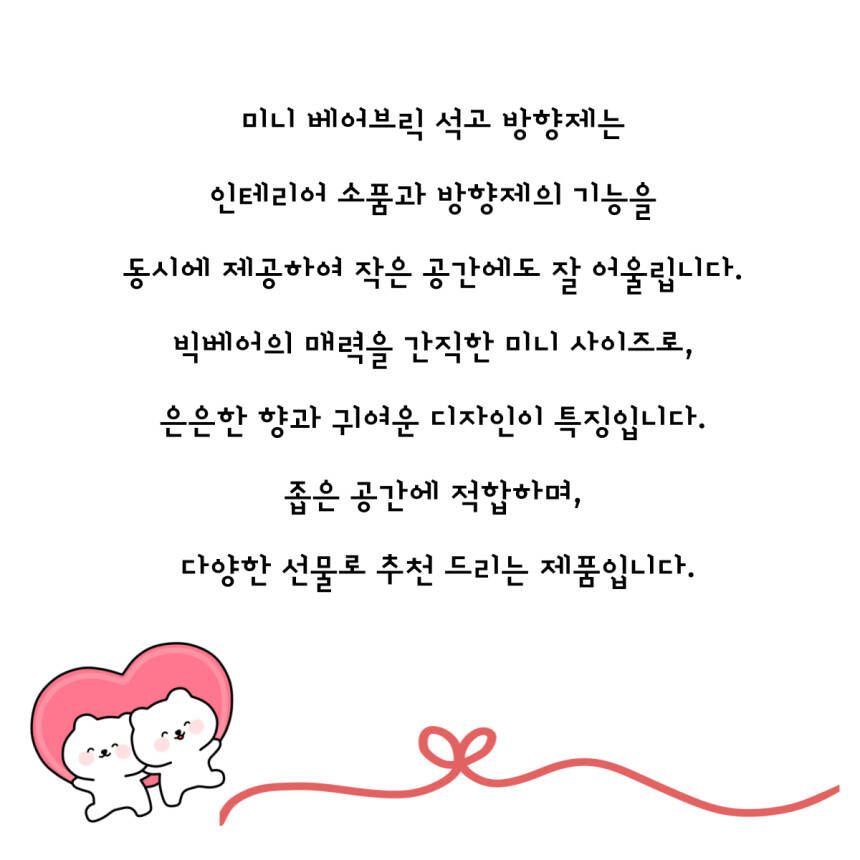 미니 베어브릭 석고 방향제는
인테리어 소품과 방향제의 기능을
동시에 제공하여 작은 공간에도 잘 어울립니다.
빅베어의 매력을 간직한 미니 사이즈로,
은은한 향과 귀여운 디자인이 특징입니다.
좁은 공간에 적합하며,
다양한 선물로 추천 드리는 제품입니다.